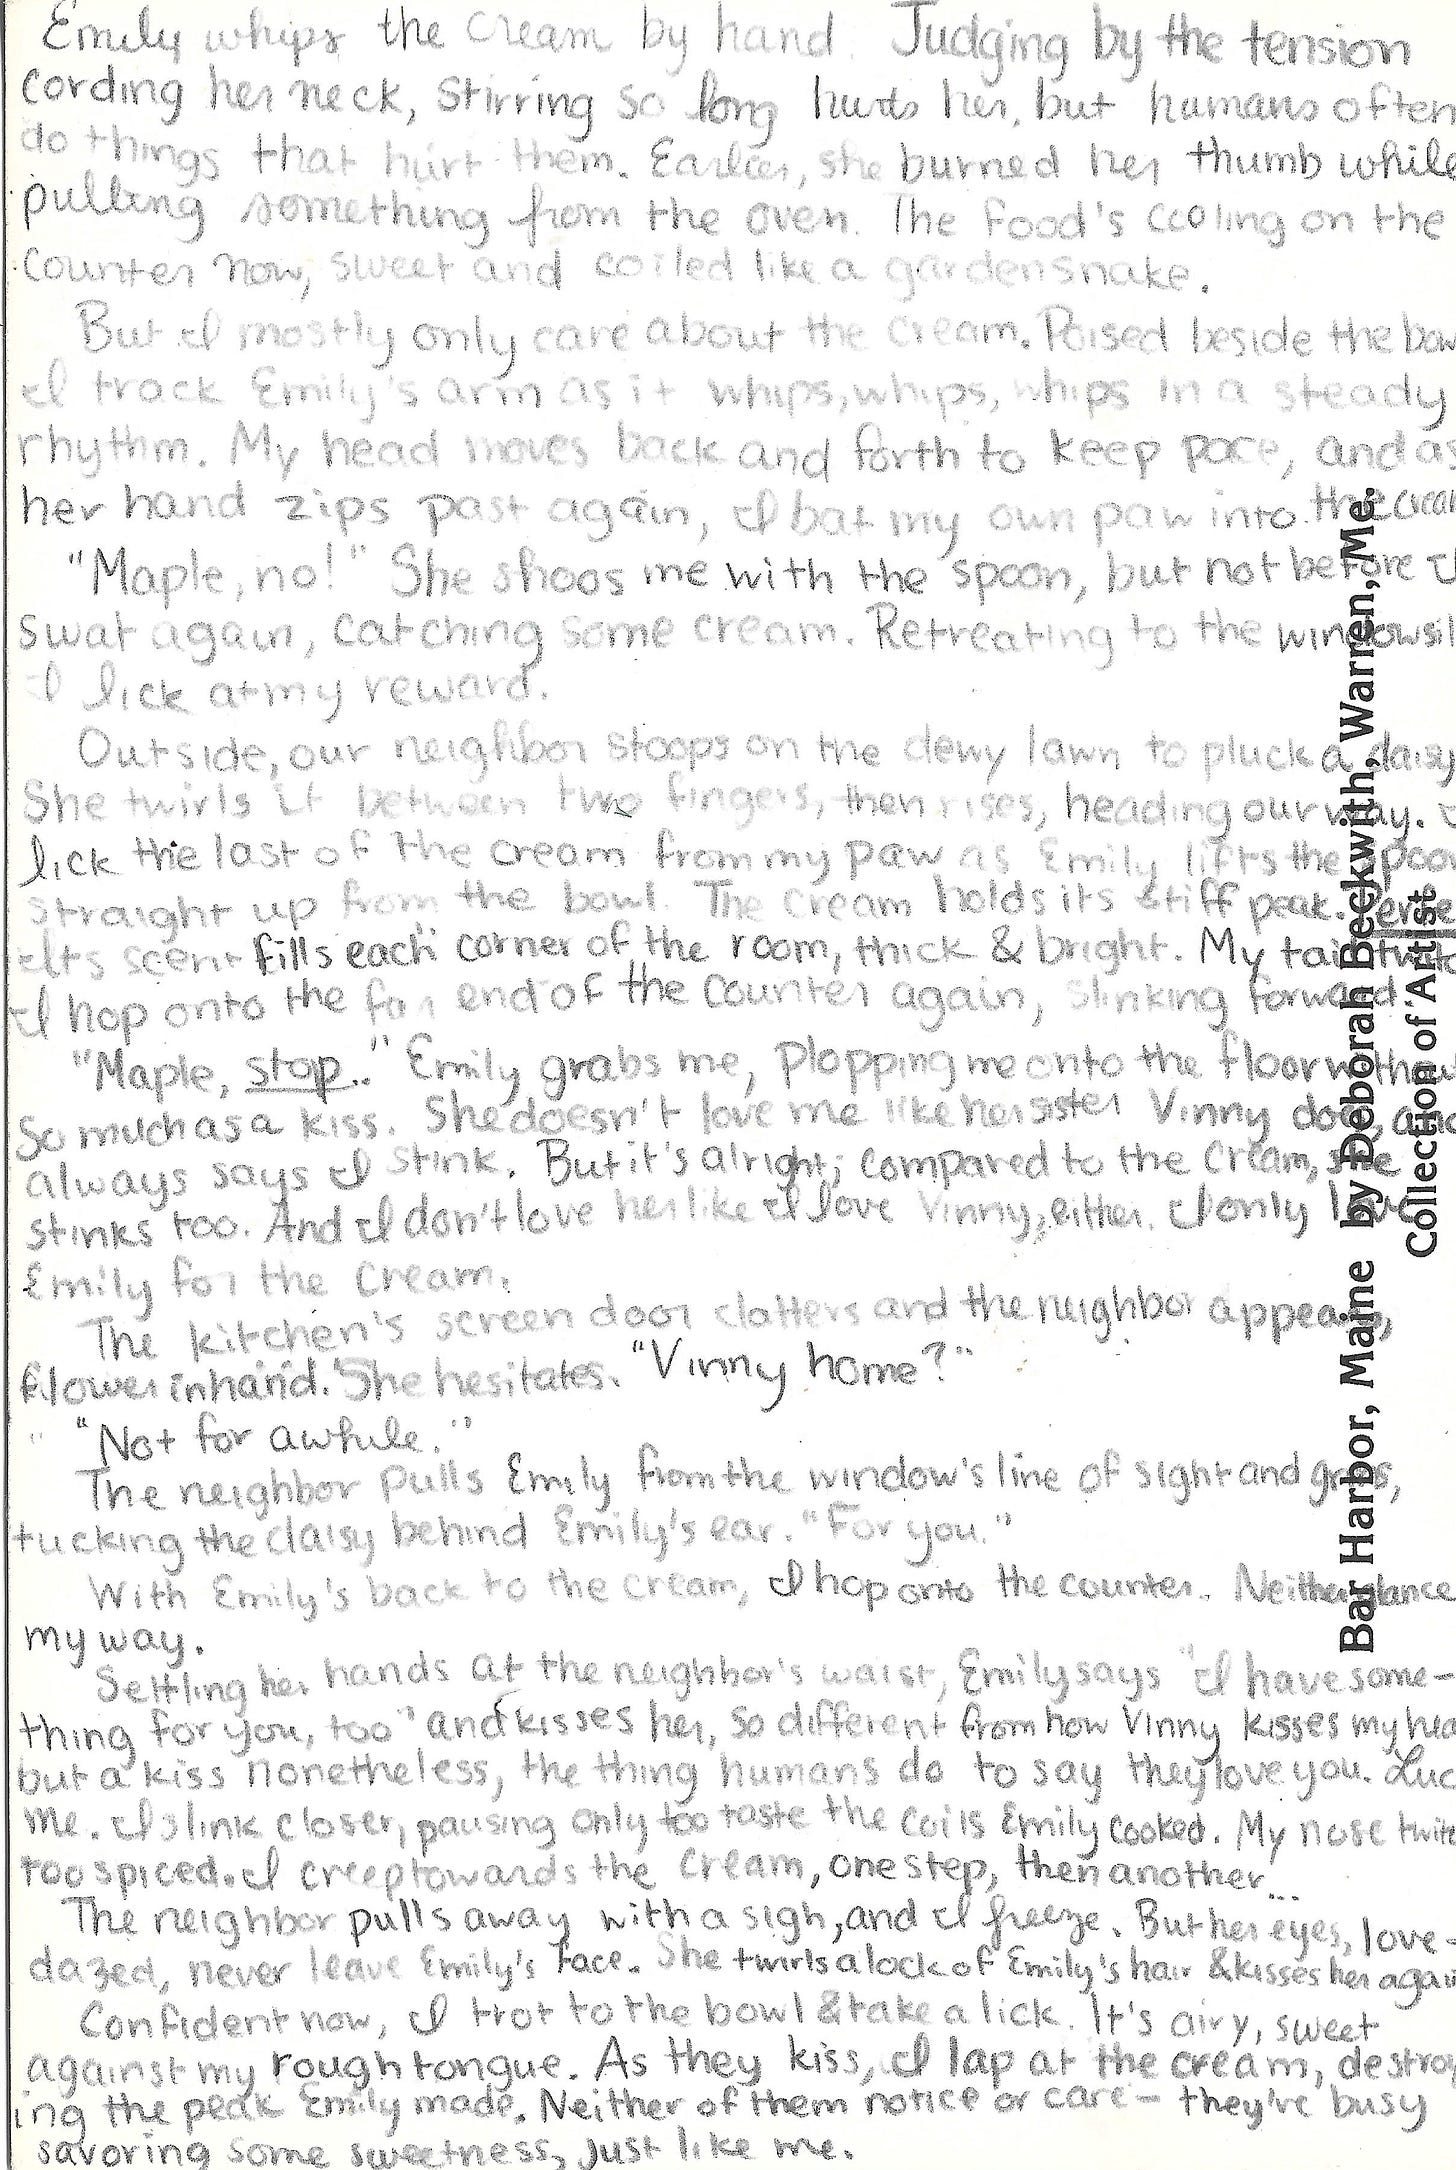 Emily whips the cream by hand. Judging by the tension
cording her neck, stirring so long hurts her, but humans often
do things that hurt them. Earlier, she burned her thumb while
pulling something from the oven. The food's cooling on the
counter now, sweet and coiled like a garden snake.
But I mostly only care about the cream. Poised beside the bow
I track Emily's arm as it whips, whips, whips in a steady
rhythm. My head moves back and forth to keep pace, and as
her hand zips past again, I bat my own paw into the crea
"Maple, no!" She shoos me with the spoon, but not before I
swat again, catching some cream. Retreating to the windowsil
I lick at my reward.
Outside, our neighbor stoops on the dewy lawn to pluck a daisy
She twirls it between two fingers, then rises, heading our way. I
lick the last of the cream from my paw as Emily lifts the spoon
straight up from the bowl. The cream holds its stiff peak.
Its scent fills each corner of the room, thick & bright. My tail
I hop onto the far end of the counter again, slinking forward.
"Maple, stop." Emily grabs me, plopping me onto the floor withou
so much as a kiss. She doesn't love me like her sister Vinny does, and
always says I stink. But it's alright; compared to the cream, she
stinks too. And I don't love her like I love Vinny, either. I only love
Emily for the cream.
The kitchen's screen door clatters and the neighbor appears,
flower in hand. She hesitates. "Vinny home?"
"Not for awhile."
The neighbor pulls Emily from the window's line of sight and grins,
tucking the daisy behind Emily's ear. "For you."
With Emily's back to the cream, I hop onto the counter. Neither glance
my way.
Settling her hands at the neighbor's waist, Emily says "I have some-
thing for you, too" and kisses her, so different from how Vinny kisses my hea
but a kiss nonetheless, the thing humans do to say they love you. Luc
me. I slink closer, pausing only too taste the coils Emily cooked. My nose twitc
too spiced. I creep towards the cream, one step, then another...
The neighbor pulls away with a sigh, and I freeze. But her eyes, love-
dazed, never leave Emily's face. She twirls a lock of Emily's hair & kisses her again
Confident now, I trot to the bowl & take a lick. It's airy, sweet
against my rough tongue. As they kiss, I lap at the cream, destroy
ing the peak Emily made. Neither of them notice or care – they're busy
savoring some sweetness, just like me.
Bar Harbor, Maine by Deborah Beckwith, Warren, Me.
Collection of Artist